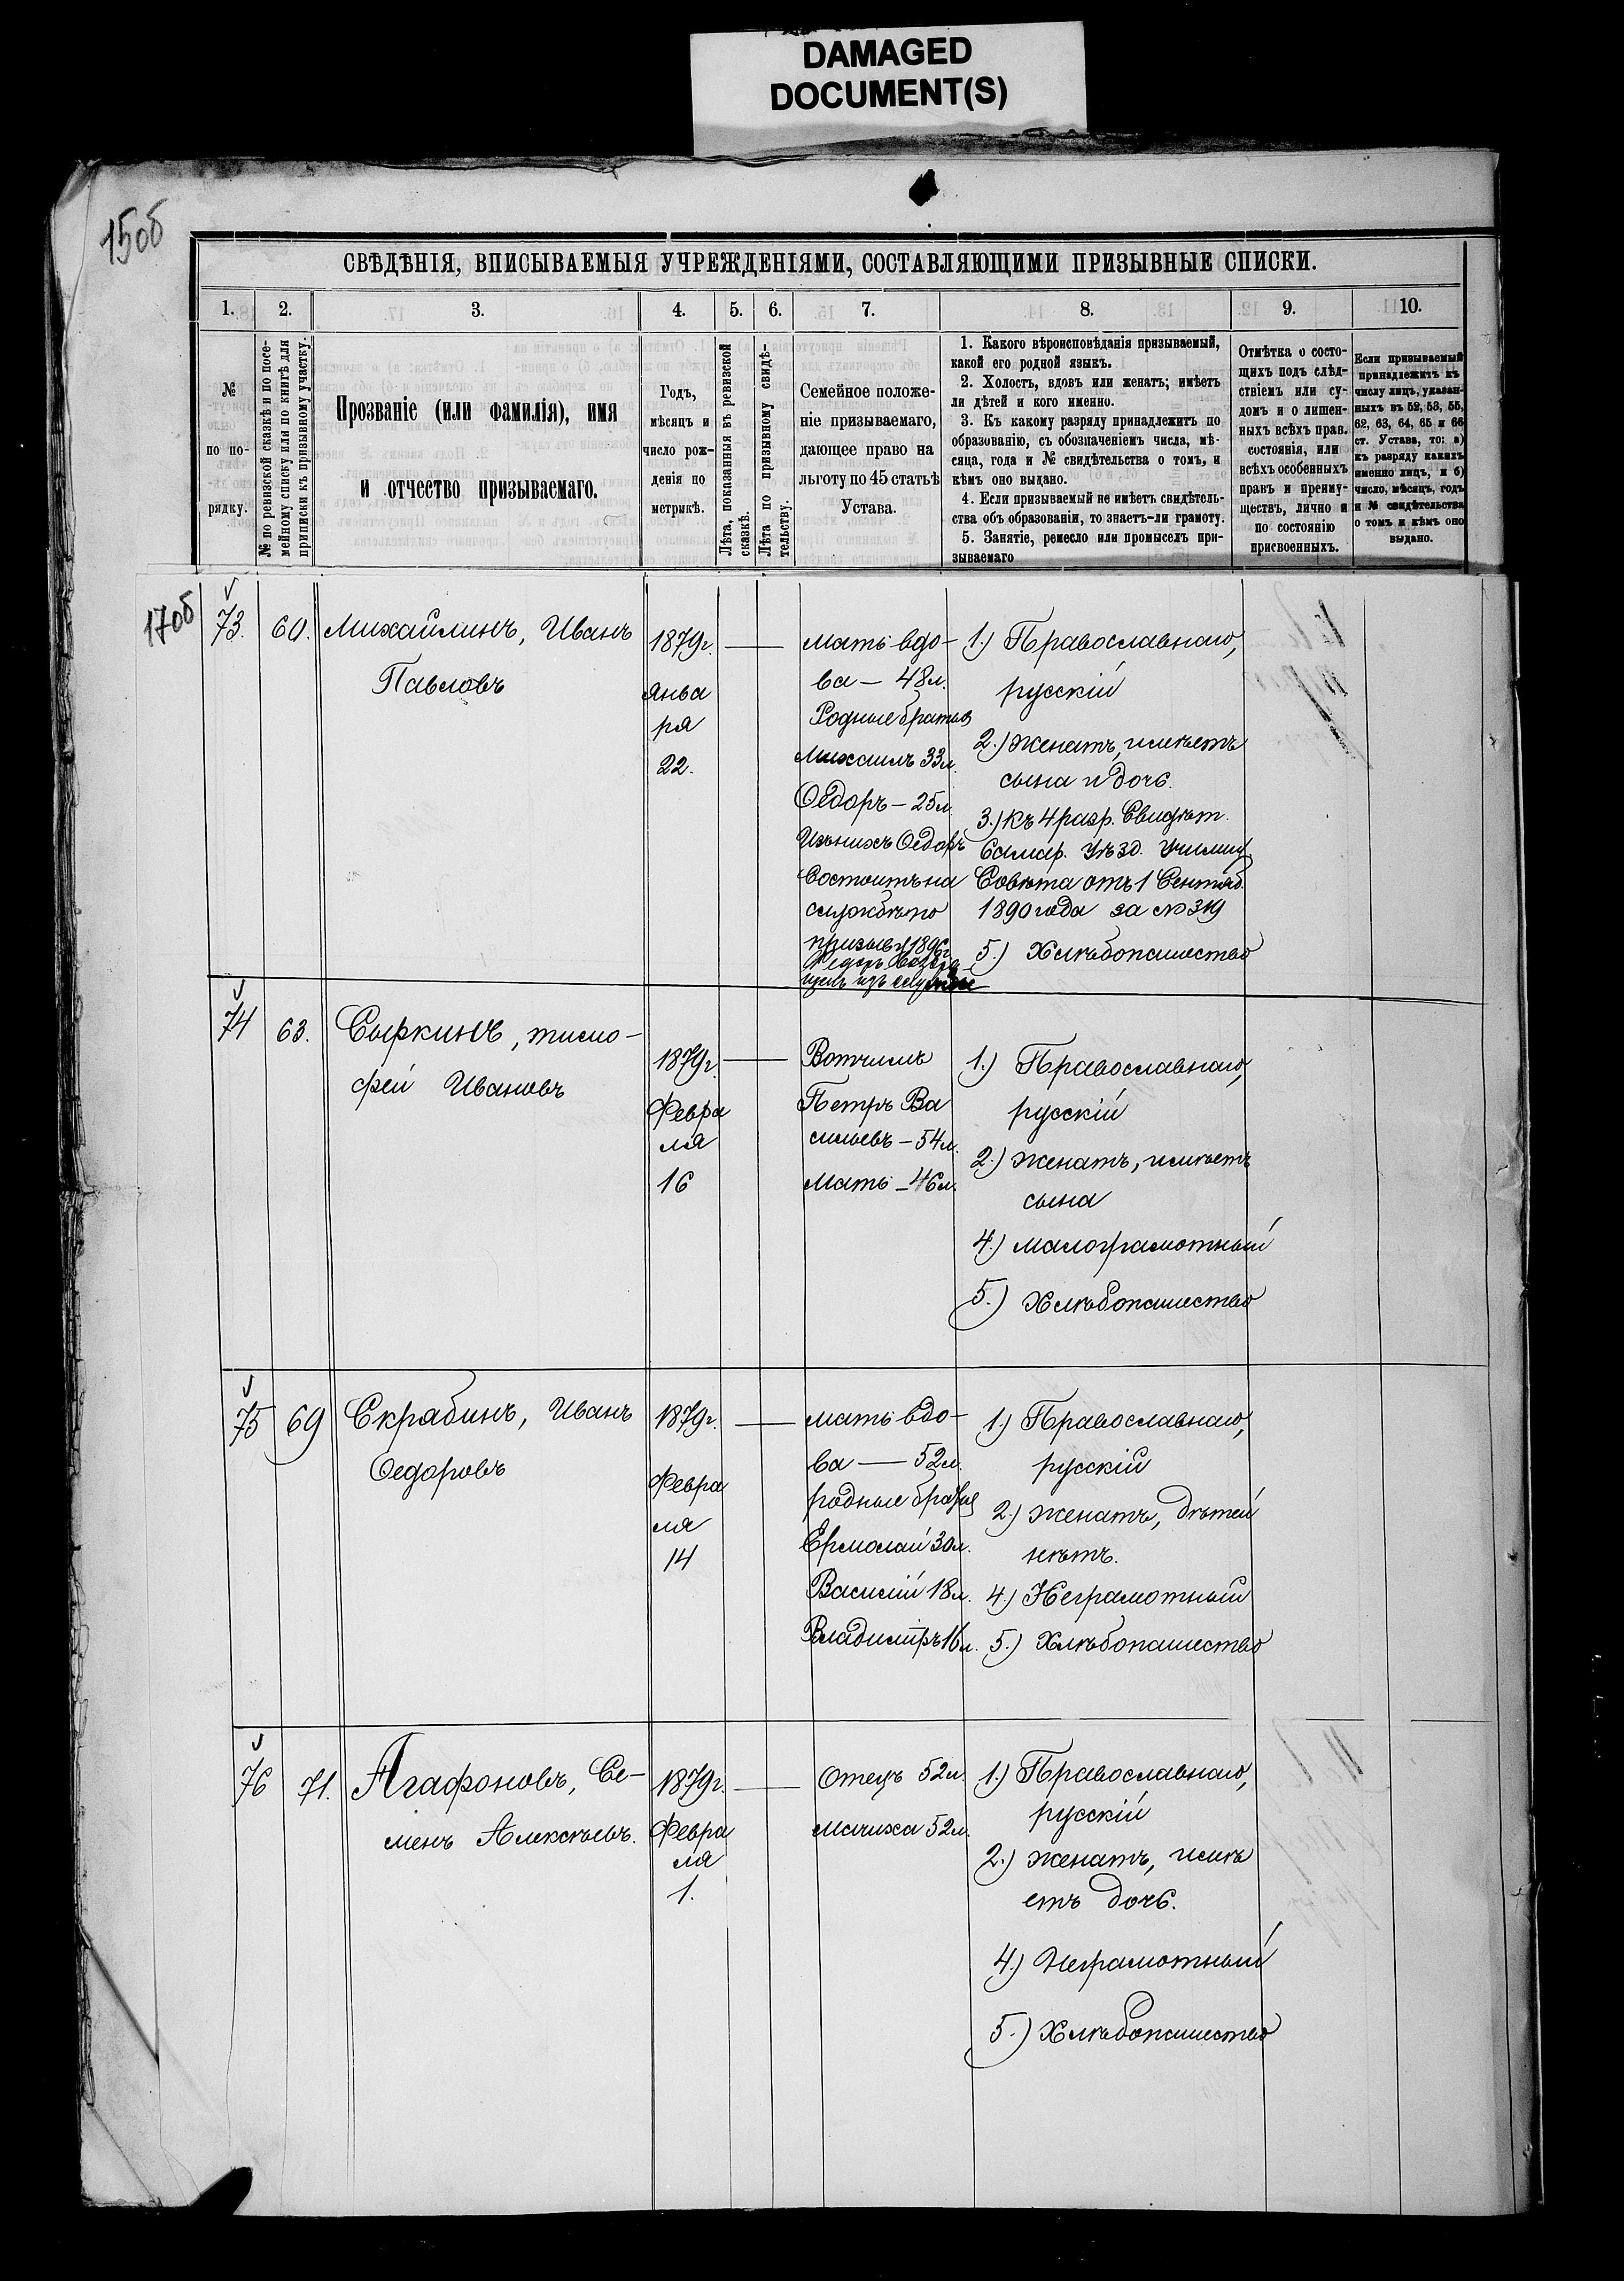 DAMAGED
DOCUMENT(S)
150б
СВѢДѢНІЯ, ВПИСЫВАЕМЫЯ УЧРЕЖДЕНІЯМИ, СОСТАВЛЯЮЩИМИ ПРИЗЫВНЫЕ СПИСКИ.
1. 2. 3. 4. 5. 6. 7. 8. 9. 10.
№
по по-
рядку.
№ по ревизской сказкѣ и по посе-
мейному списку или по книгѣ для
приписки къ призывному участку.
Прозваніе (или фамилія), имя
и отчество призываемаго.
Годъ,
мѣсяцъ и
число рож-
денія по
метрикѣ.
Лѣта, показанныя въ ревизской
сказкѣ.
Лѣта по призывному свидѣ-
тельству.
Семейное положе-
ніе призываемаго,
дающее право на
льготу по 45 статьѣ
Устава.
1. Какого вѣроисповѣданія призываемый,
какой его родной языкъ.
2. Холостъ, вдовъ или женатъ; имѣетъ
ли дѣтей и кого именно.
3. Къ какому разряду принадлежитъ по
образованію, съ обозначеніемъ числа, мѣ-
сяца, года и № свидѣтельства о томъ, и
кѣмъ оно выдано.
4. Если призываемый не имѣетъ свидѣтель-
ства объ образованіи, то знаетъ-ли грамоту.
5. Занятіе, ремесло или промыселъ при-
зываемаго
Отмѣтка о состо-
щихъ подъ слѣд-
ствіемъ или су-
домъ и о лишен-
ныхъ всѣхъ прав.
состоянія, или
всѣхъ особенныхъ
правъ и преиму-
ществъ, лично и
по состоянію
присвоенныхъ.
Если призываемый
принадлежитъ къ
числу лицъ, указан-
ныхъ въ 52, 53, 55,
62, 63, 64, 65 и 66
ст. Устава, то: а)
къ разряду какихъ
именно лицъ, и б)
число, мѣсяцъ, годъ
и № свидѣтельства
о томъ и кѣмъ оно
выдано.
170б
73. 60. Михайлинъ, Иванъ
Павловъ
1879г.
Янва
ря
22.
мать вдо-
ва — 48л.
Родные братья
Михаилъ 33л.
Ѳедоръ — 25л.
Изъ нихъ Ѳедоръ
состоитъ на
службѣ по
призыву 1896г.
изъ службы
1.) Православнаго,
русскій
2.) женатъ, имѣетъ
сына и дочь.
3.) Къ 4 разр. Свидѣт.
Самар. Уѣзд. Училищ.
Совѣта отъ 1 Сентяб.
1890 года за № 319
5.) Хлѣбопашество
74 63. Сыркинъ, тимо-
фей Ивановъ
1879г.
Февра
ля
16
Вотчимъ
Петръ Ва
сильевъ — 54л.
Мать — 46л.
1.) Православнаго,
русскій
2.) женатъ, имѣетъ
сына
4.) малограмотный
5.) Хлѣбопашество
75 69 Скрябинъ, Иванъ
Ѳедоровъ
1879г.
Февра
ля
14
мать вдо-
ва — 52л.
родные братья
Ермолай 30л.
Василій 18л.
Владиміръ 16л.
1.) Православнаго,
русскій
2.) женатъ, дѣтей
нѣтъ.
4.) Неграмотный
5.) Хлѣбопашество
76 71. Агафоновъ, Се-
менъ Алексѣевъ.
1879г.
Февра
ля
1.
Отецъ 52л.
Мачиха 52л.
1.) Православнаго,
русскій
2.) женатъ, имѣ
етъ дочь.
4.) Неграмотный
5.) Хлѣбопашество